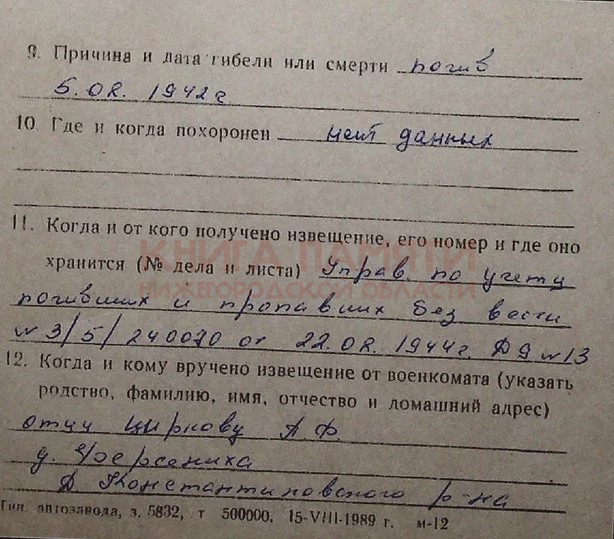 9. Причина и дата гибели или смерти погиб
5.02. 1942г
10 Где и когда похоронен нет данных
11. Когда и от кого получено извещение, его номер и где оно
КНИГА ПАМЯТИ
хранится (№ дела и листа) Управ. по учету
НИЖЕГОРОДСКОЙ ОБЛАСТИ
погибших и пропавших без вести
№ 3/5/240070 от 22.02. 1944г. Д 9 № 13
12. Когда и кому вручено извещение от военкомата (указать
родство, фамилию, имя, отчество и домашний адрес)
отцу Циркову А Ф.
д.
Д Константиновского р-на
Тип. автозавода, з. 5832, т 500000, 15-VIII-1989 г. м-12